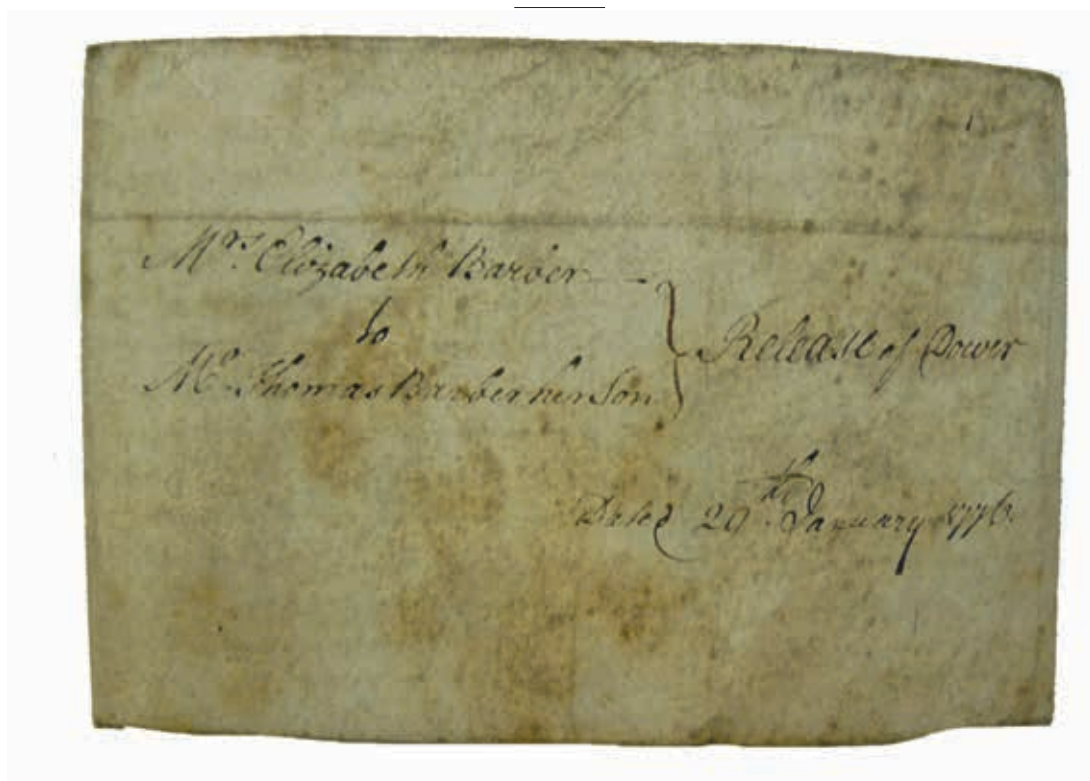 Mrs. Elizabeth Barber
to
Mr. Thomas Barber her Son
Release of Dower
Dated 20th. January 1776.